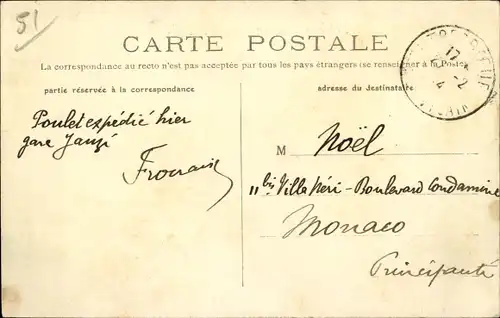 51
CARTE POSTALE
La correspondance au recto n'est pas acceptée par tous les pays étrangers (se renseigner à la Poste)
partie réservée à la correspondance
adresse du destinataire
Poulet expédié hier
gare
M Noël
11 bis Villa Néri - Boulevard Condamine
Monaco
Principauté
17